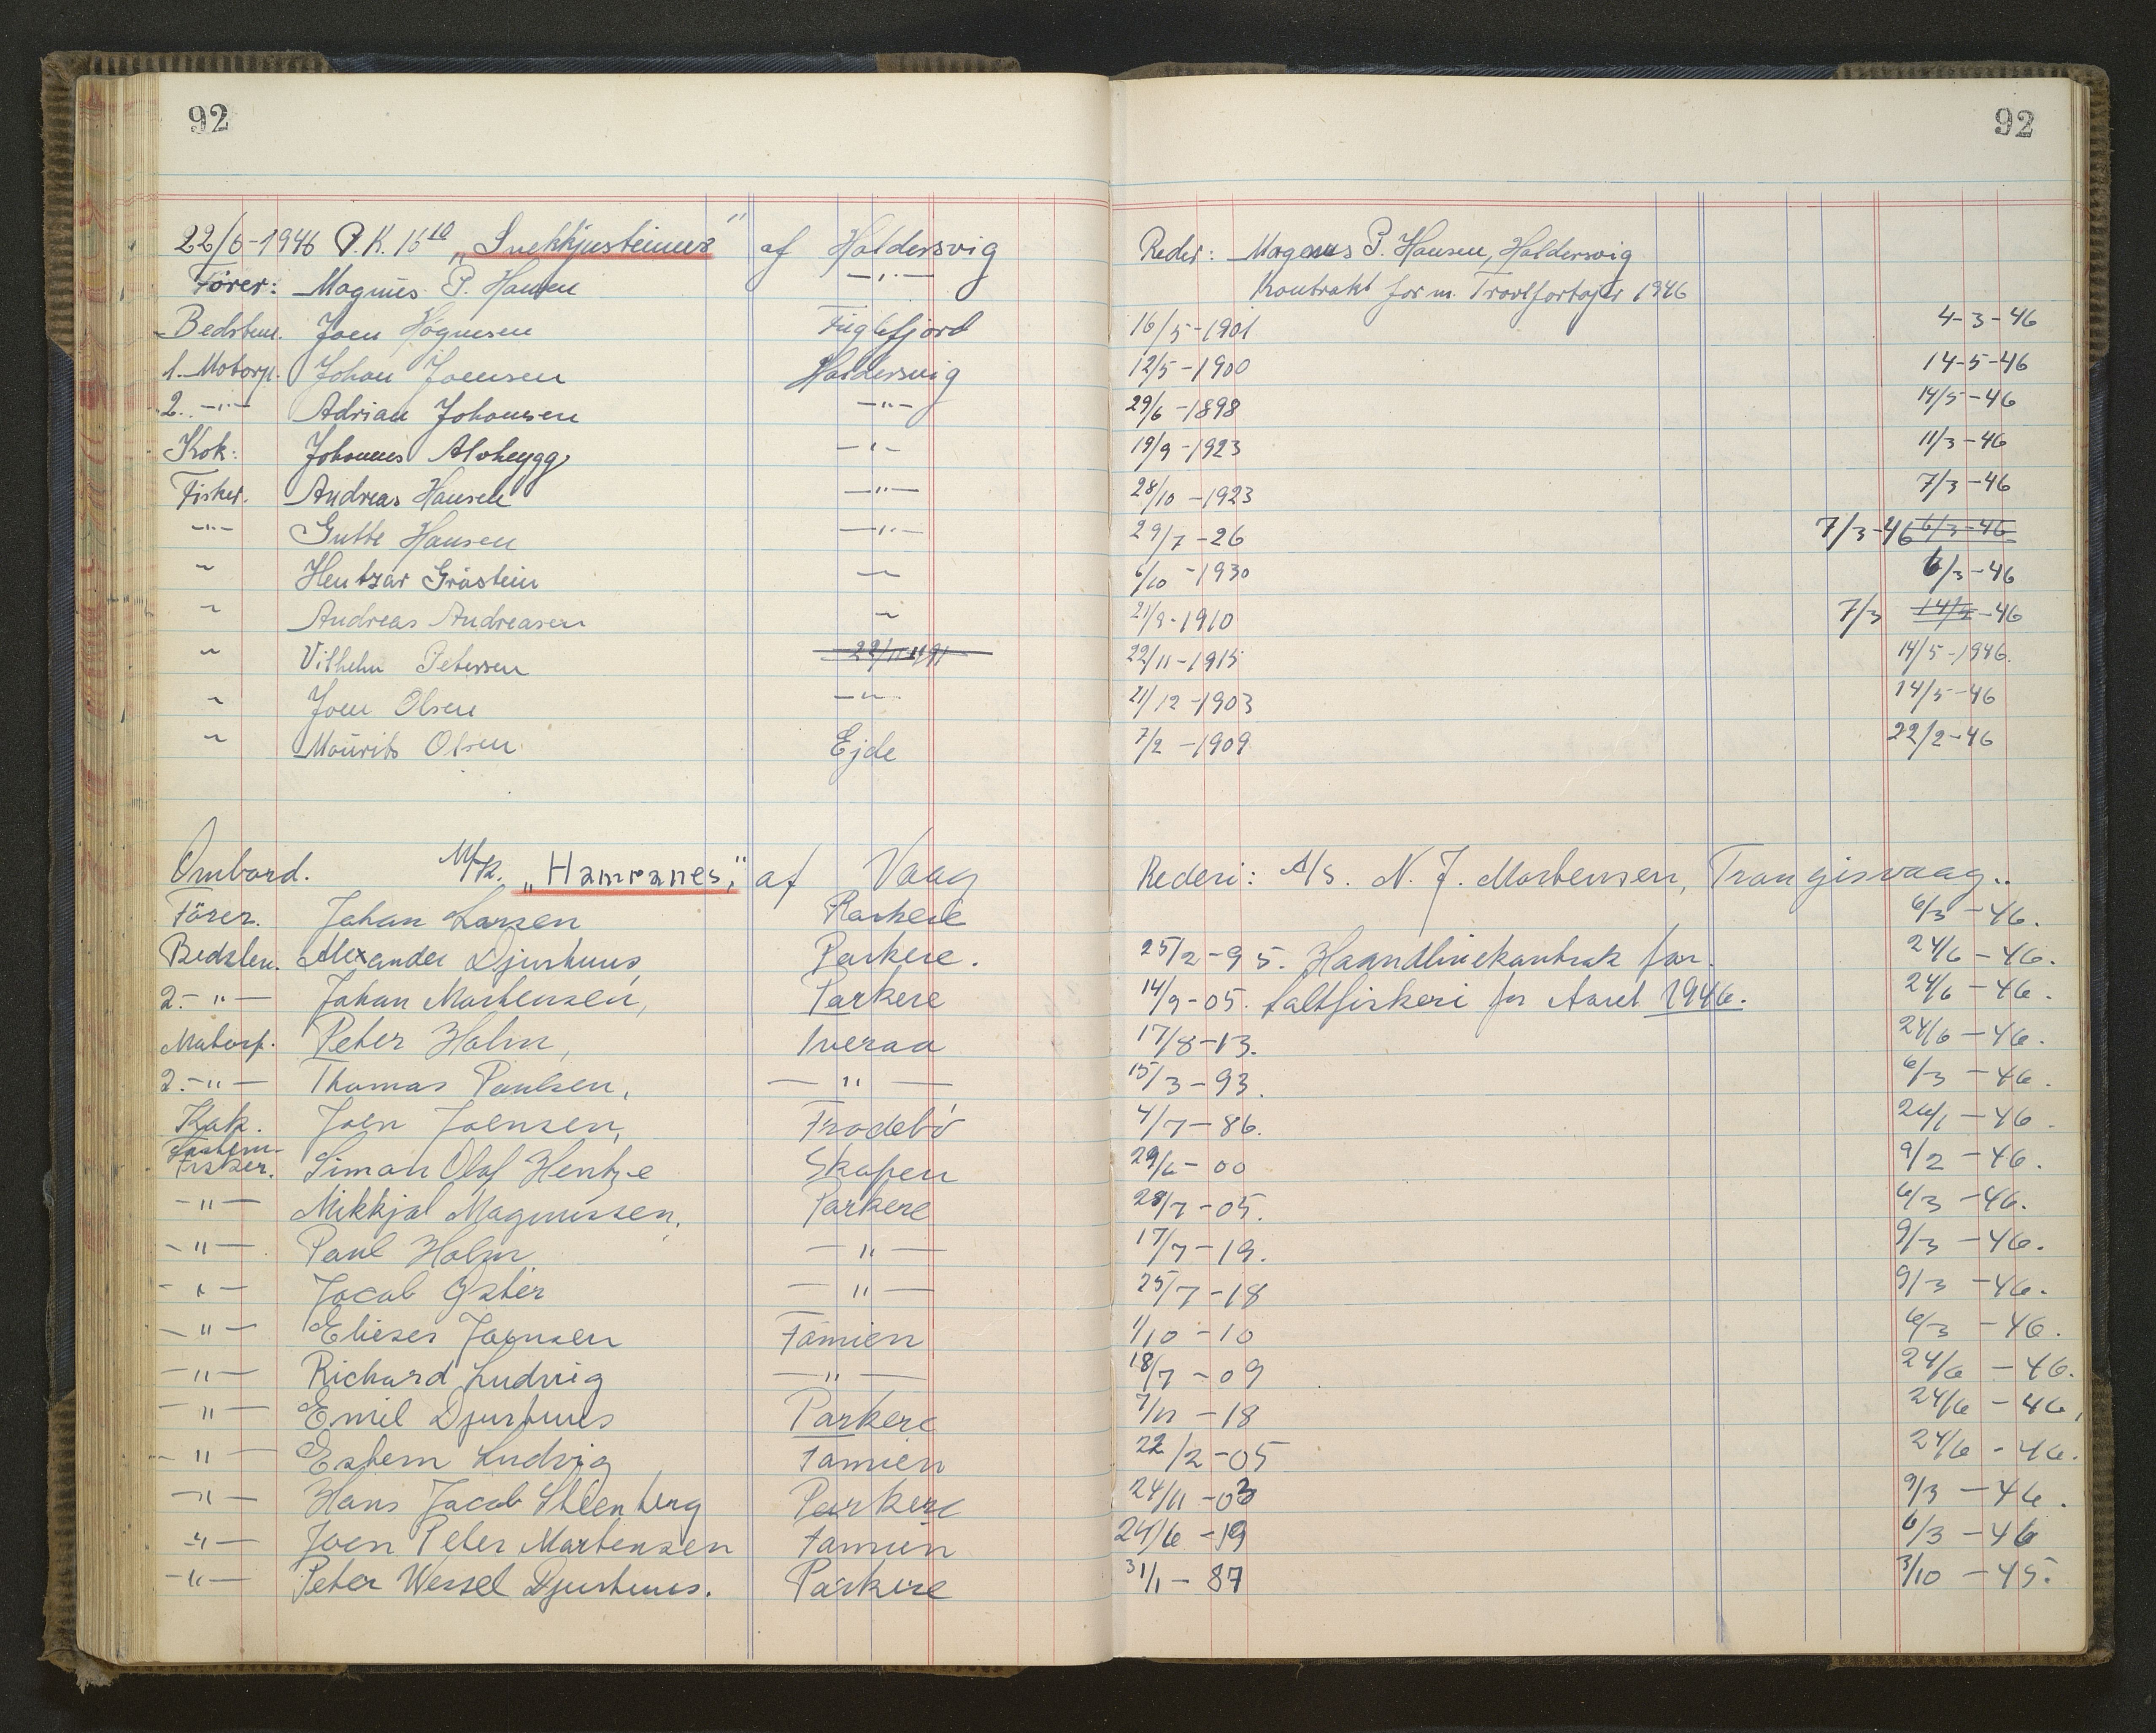 92
92
22/6-1946 P.K. 16¹⁰ „Snekkjusteinur" af Haldersvig Reder: Magnus P. Hansen, Haldersvig
Förer: Magnus P. Hansen —"— Kontrakt for m. Trawlfartøjer 1946
Bedstem. Joen Högnesen Fuglefjord 16/5-1901 4-3-46
1. Motorp. Johan Joensen Haldersvig 12/5-1900 14-5-46
2. —"— Adrian Johansen —"— 29/6-1898 14/5-46
Kok: Johannes Alvheygg —"— 19/9-1923 11/3-46
Fisker. Andreas Hansen —"— 28/10-1923 7/3-46
—"— Gutte Hansen —"— 29/7-26 7/3-46 6/3-46
" Hentzar Gråstein — 6/10-1930 6/3-46
" Andreas Andreasen " 21/9-1910 7/3 14/5-46
" Vilhelm Petersen 22/11-1191 22/11-1915 14/5-1946.
" Joen Olsen —"— 21/12-1903 14/5-46
" Mourits Olsen. Ejde 7/2-1909 22/2-46
Ombord. M/k. „Hamranes," af Vaag Rederi: A/S. N. J. Mortensen, Trangisvaag..
Förer. Johan Larsen Porkere 6/3-46.
Bedstem. Alexander Djurhuus, Porkere. 25/2-95. Haandlinekontrak for 24/6-46.
2.-"— Johan Mortensen, Porkere 14/9-05. saltfiskeri for Aaret 1946. 24/6-46.
Motorp. Peter Holm, Hveraa 17/8-13. 24/6-46.
2.-"— Thomas Poulsen, —"— 15/3-93. 6/3-46.
Kok. Joen Joensen, Frodebö 4/7-86. 24/1-46.
Fastem-
Fisker. Simon Olaf Hentze Skopen 29/6-00 9/2-46.
—"— Mikkjal Magnussen, Porkere 28/7-05. 6/3-46.
—"— Paul Holm —"— 17/7-19. 9/3-46.
—"— Jacob Øster —"— 25/7-18 9/3-46.
—"— Elieser Joensen Famien 1/10-10 6/3-46.
—"— Richard Ludvig —"— 18/7-09 24/6-46.
—"— Emil Djurhuus Porkere 7/11-18 24/6-46,
—"— Estern Ludvig Famien 22/2-05 24/6-46.
—"— Hans Jacob Steenberg Porkere 24/11-03 9/3-46.
—"— Joen Peter Mortensen Famien 24/6-19 6/3-46
—"— Peter Wessel Djurhuus. Porkere 31/1-87 3/10-45.